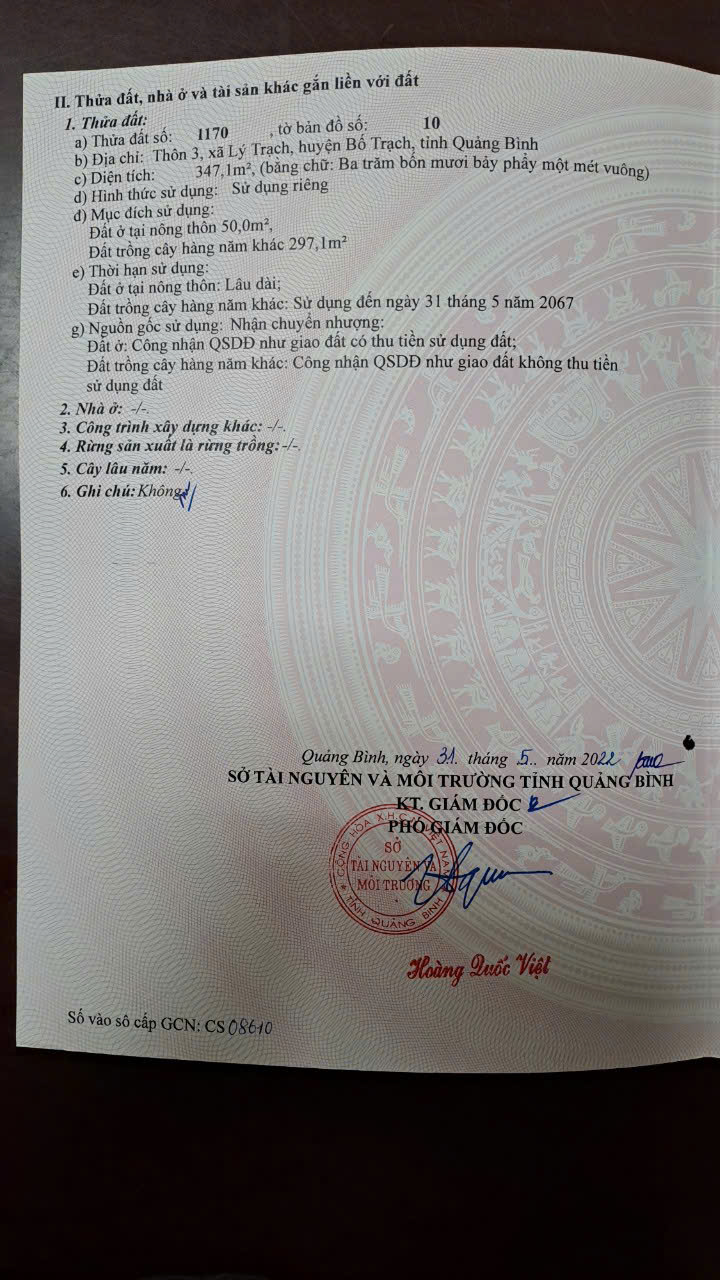 II. Thửa đất, nhà ở và tài sản khác gắn liền với đất
1. Thửa đất:
a) Thửa đất số: 1170 , tờ bản đồ số: 10
b) Địa chỉ: Thôn 3, xã Lý Trạch, huyện Bố Trạch, tỉnh Quảng Bình
c) Diện tích: 347,1m², (bằng chữ: Ba trăm bốn mươi bảy phẩy một mét vuông)
d) Hình thức sử dụng: Sử dụng riêng
đ) Mục đích sử dụng:
Đất ở tại nông thôn 50,0m²,
Đất trồng cây hàng năm khác 297,1m²
e) Thời hạn sử dụng:
Đất ở tại nông thôn: Lâu dài;
Đất trồng cây hàng năm khác: Sử dụng đến ngày 31 tháng 5 năm 2067
g) Nguồn gốc sử dụng: Nhận chuyển nhượng:
Đất ở: Công nhận QSDĐ như giao đất có thu tiền sử dụng đất;
Đất trồng cây hàng năm khác: Công nhận QSDĐ như giao đất không thu tiền
sử dụng đất
2. Nhà ở: -/-.
3. Công trình xây dựng khác: -/-.
4. Rừng sản xuất là rừng trồng: -/-.
5. Cây lâu năm: -/-.
6. Ghi chú: Không
Quảng Bình, ngày 31. tháng .5.. năm 2022
SỞ TÀI NGUYÊN VÀ MÔI TRƯỜNG TỈNH QUẢNG BÌNH
KT. GIÁM ĐỐC
PHÓ GIÁM ĐỐC
CỘNG HÒA X.H.C.N VIỆT NAM
SỞ
TÀI NGUYÊN VÀ
MÔI TRƯỜNG
TỈNH QUẢNG BÌNH
Hoàng Quốc Việt
Số vào sổ cấp GCN: CS 08610